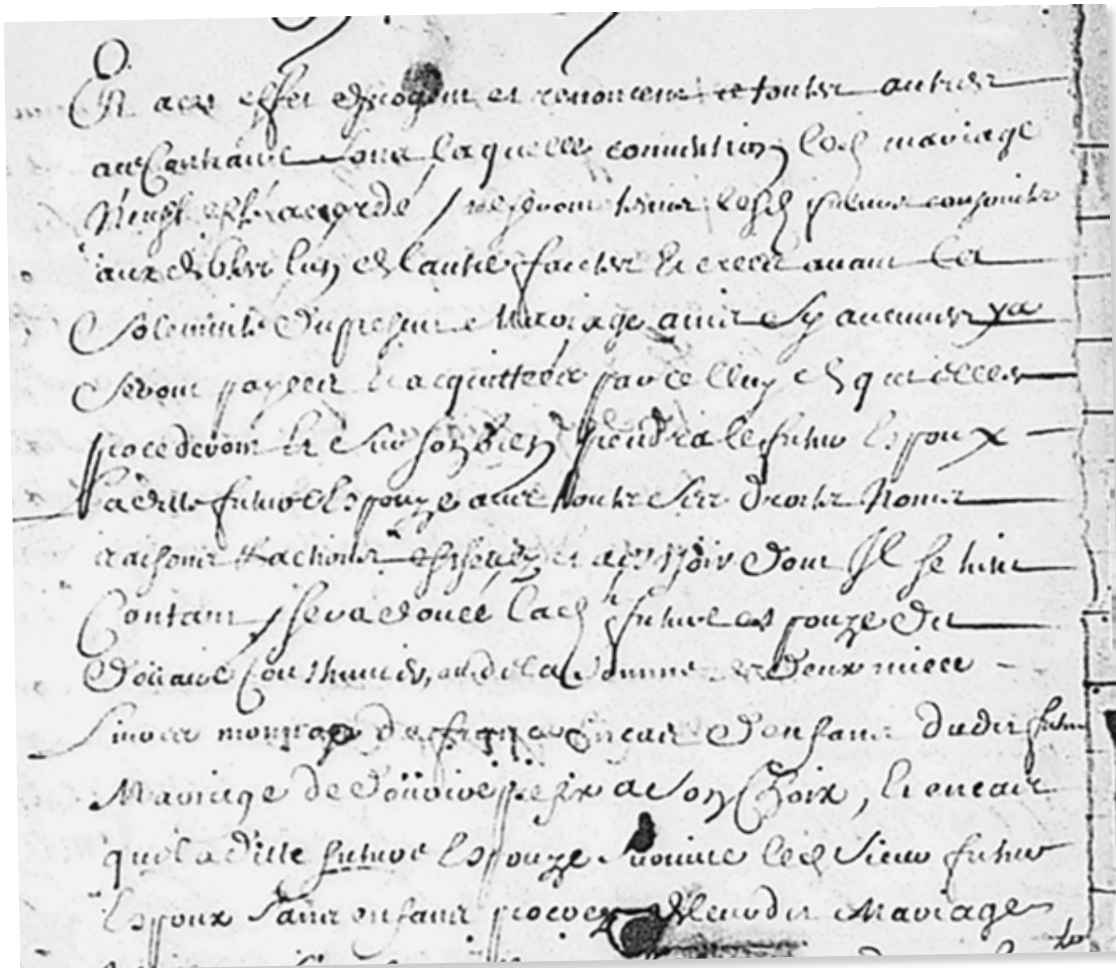 Et a cet effet derogent et renoncent a toutes autres
au Contraire sans laquelle convention led mariage
N'eust esté accordé / ne seront tenus lesd futurs conjoints
aux debtes l'un de l'autre faictes et crees avant la
Solemnité du present Mariage ains sy aucunes y a
Seront payees et acquittées par celluy du quel elles
procederont et sur son bien / prendra le futur Espoux
ladite future Espouze avec touts ses droits Noms
raisons et actions dont Il se tient
Contant / sera douée lad future espouze du
Doüaire Coustumier, ou de la Somme de Deux mille
Livres monnoye de france En cas d'enfans dudit futur
Mariage de Doüaire prefix a son Choix, et en cas
que laditte future Espouze survive led Sieur futur
Espoux Sans enfans procreez dudit Mariage